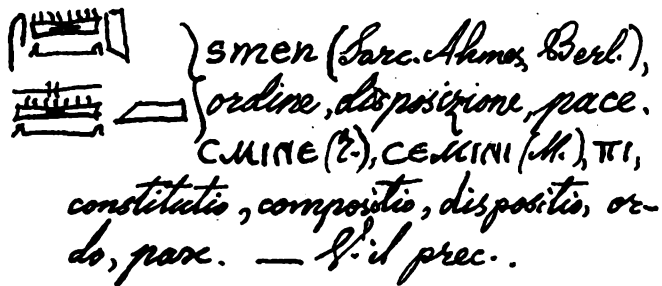 smen (Sarc. Ahmes, Berl.),
ordine, disposizione, pace.
ⲤⲘⲒⲚⲈ (T.), ⲤⲈⲘⲒⲚⲒ (M.), ⲠⲒ,
constitutio, compositio, dispositio, or-
do, pax. — V. il prec..